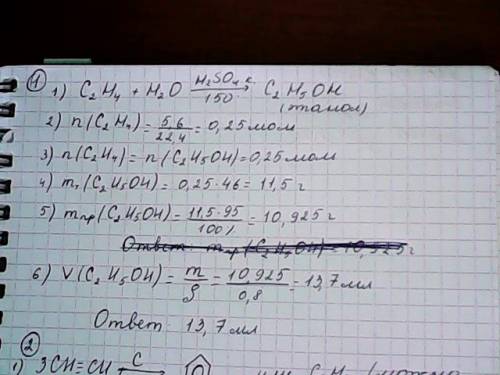 1
1) C₂H₄ + H₂O H₂SO₄ к. → 150° C₂H₅OH
(этанол)
2) n(C₂H₄) = 5,6/22,4 = 0,25 моль
3) n(C₂H₄) = n(C₂H₅OH) = 0,25 моль
4) mт(C₂H₅OH) = 0,25·46 = 11,5 г
5) mпр(C₂H₅OH) = 11,5·95/100% = 10,925 г
Ответ: mпр(C₂H₅OH) = 10,925 г
6) V(C₂H₅OH) = m/ρ = 10,925/0,8 = 13,7 мл
Ответ: 13,7 мл
2
1) 3CH≡CH C →